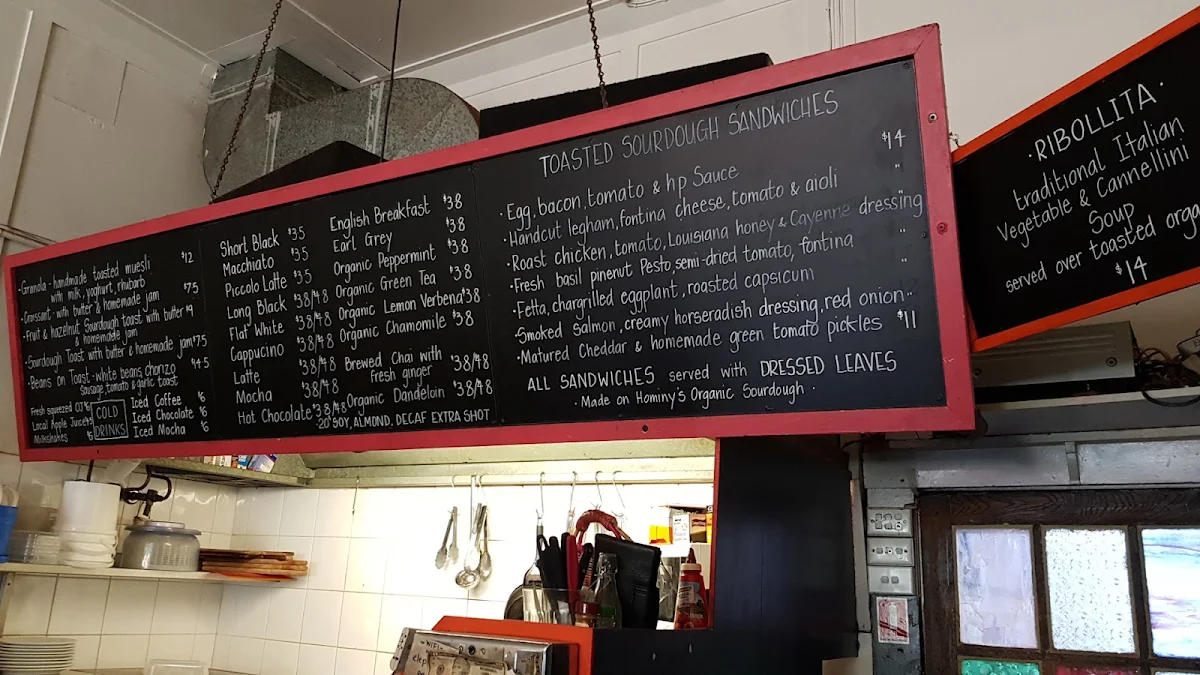 · Granola - handmade toasted muesli $12
with milk, yoghurt, rhubarb
· Croissant - with butter & homemade jam $7.5
· Fruit & hazelnut Sourdough toast with butter $9
& homemade jam
· Sourdough Toast with butter & homemade jam $7.5
· Beans on Toast - white beans, chorizo $4.5
sausage, tomato & garlic toast
Fresh squeezed OJ $6
Local Apple Juice
Milkshakes $6
COLD
DRINKS
Iced Coffee $6
Iced Chocolate $6
Iced Mocha $6
Short Black $3.5
Macchiato $3.5
Piccolo Latte $3.5
Long Black $3.8/4.8
Flat White $3.8/4.8
Cappucino $3.8/4.8
Latte $3.8/4.8
Mocha $3.8/4.8
Hot Chocolate $3.8/4.8
English Breakfast $3.8
Earl Grey $3.8
Organic Peppermint $3.8
Organic Green Tea $3.8
Organic Lemon Verbena $3.8
Organic Chamomile $3.8
Brewed Chai with $3.8/4.8
fresh ginger
Organic Dandeloin $3.8/4.8
·20 SOY, ALMOND, DECAF EXTRA SHOT
TOASTED SOURDOUGH SANDWICHES
· Egg, bacon, tomato & hp Sauce $14
· Handcut legham, fontina cheese, tomato & aioli "
· Roast chicken, tomato, Louisiana honey & Cayenne dressing "
· Fresh basil pinenut Pesto, semi-dried tomato, fontina "
· Fetta, chargrilled eggplant, roasted capsicum "
· Smoked salmon, creamy horseradish dressing, red onion "
· Matured Cheddar & homemade green tomato pickles $11
ALL SANDWICHES served with DRESSED LEAVES
· Made on Hominy's Organic Sourdough ·
· RIBOLLITA ·
traditional Italian
Vegetable & Cannellini
Soup
served over toasted orga
$14
WIFI